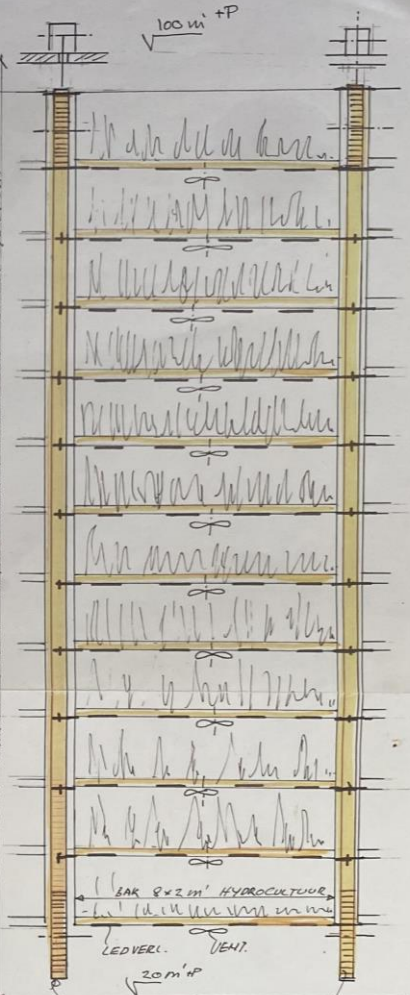 100 m' +P
BAK 8x2 m' HYDROCULTUUR
LEDVERL. VENT.
20 m' +P